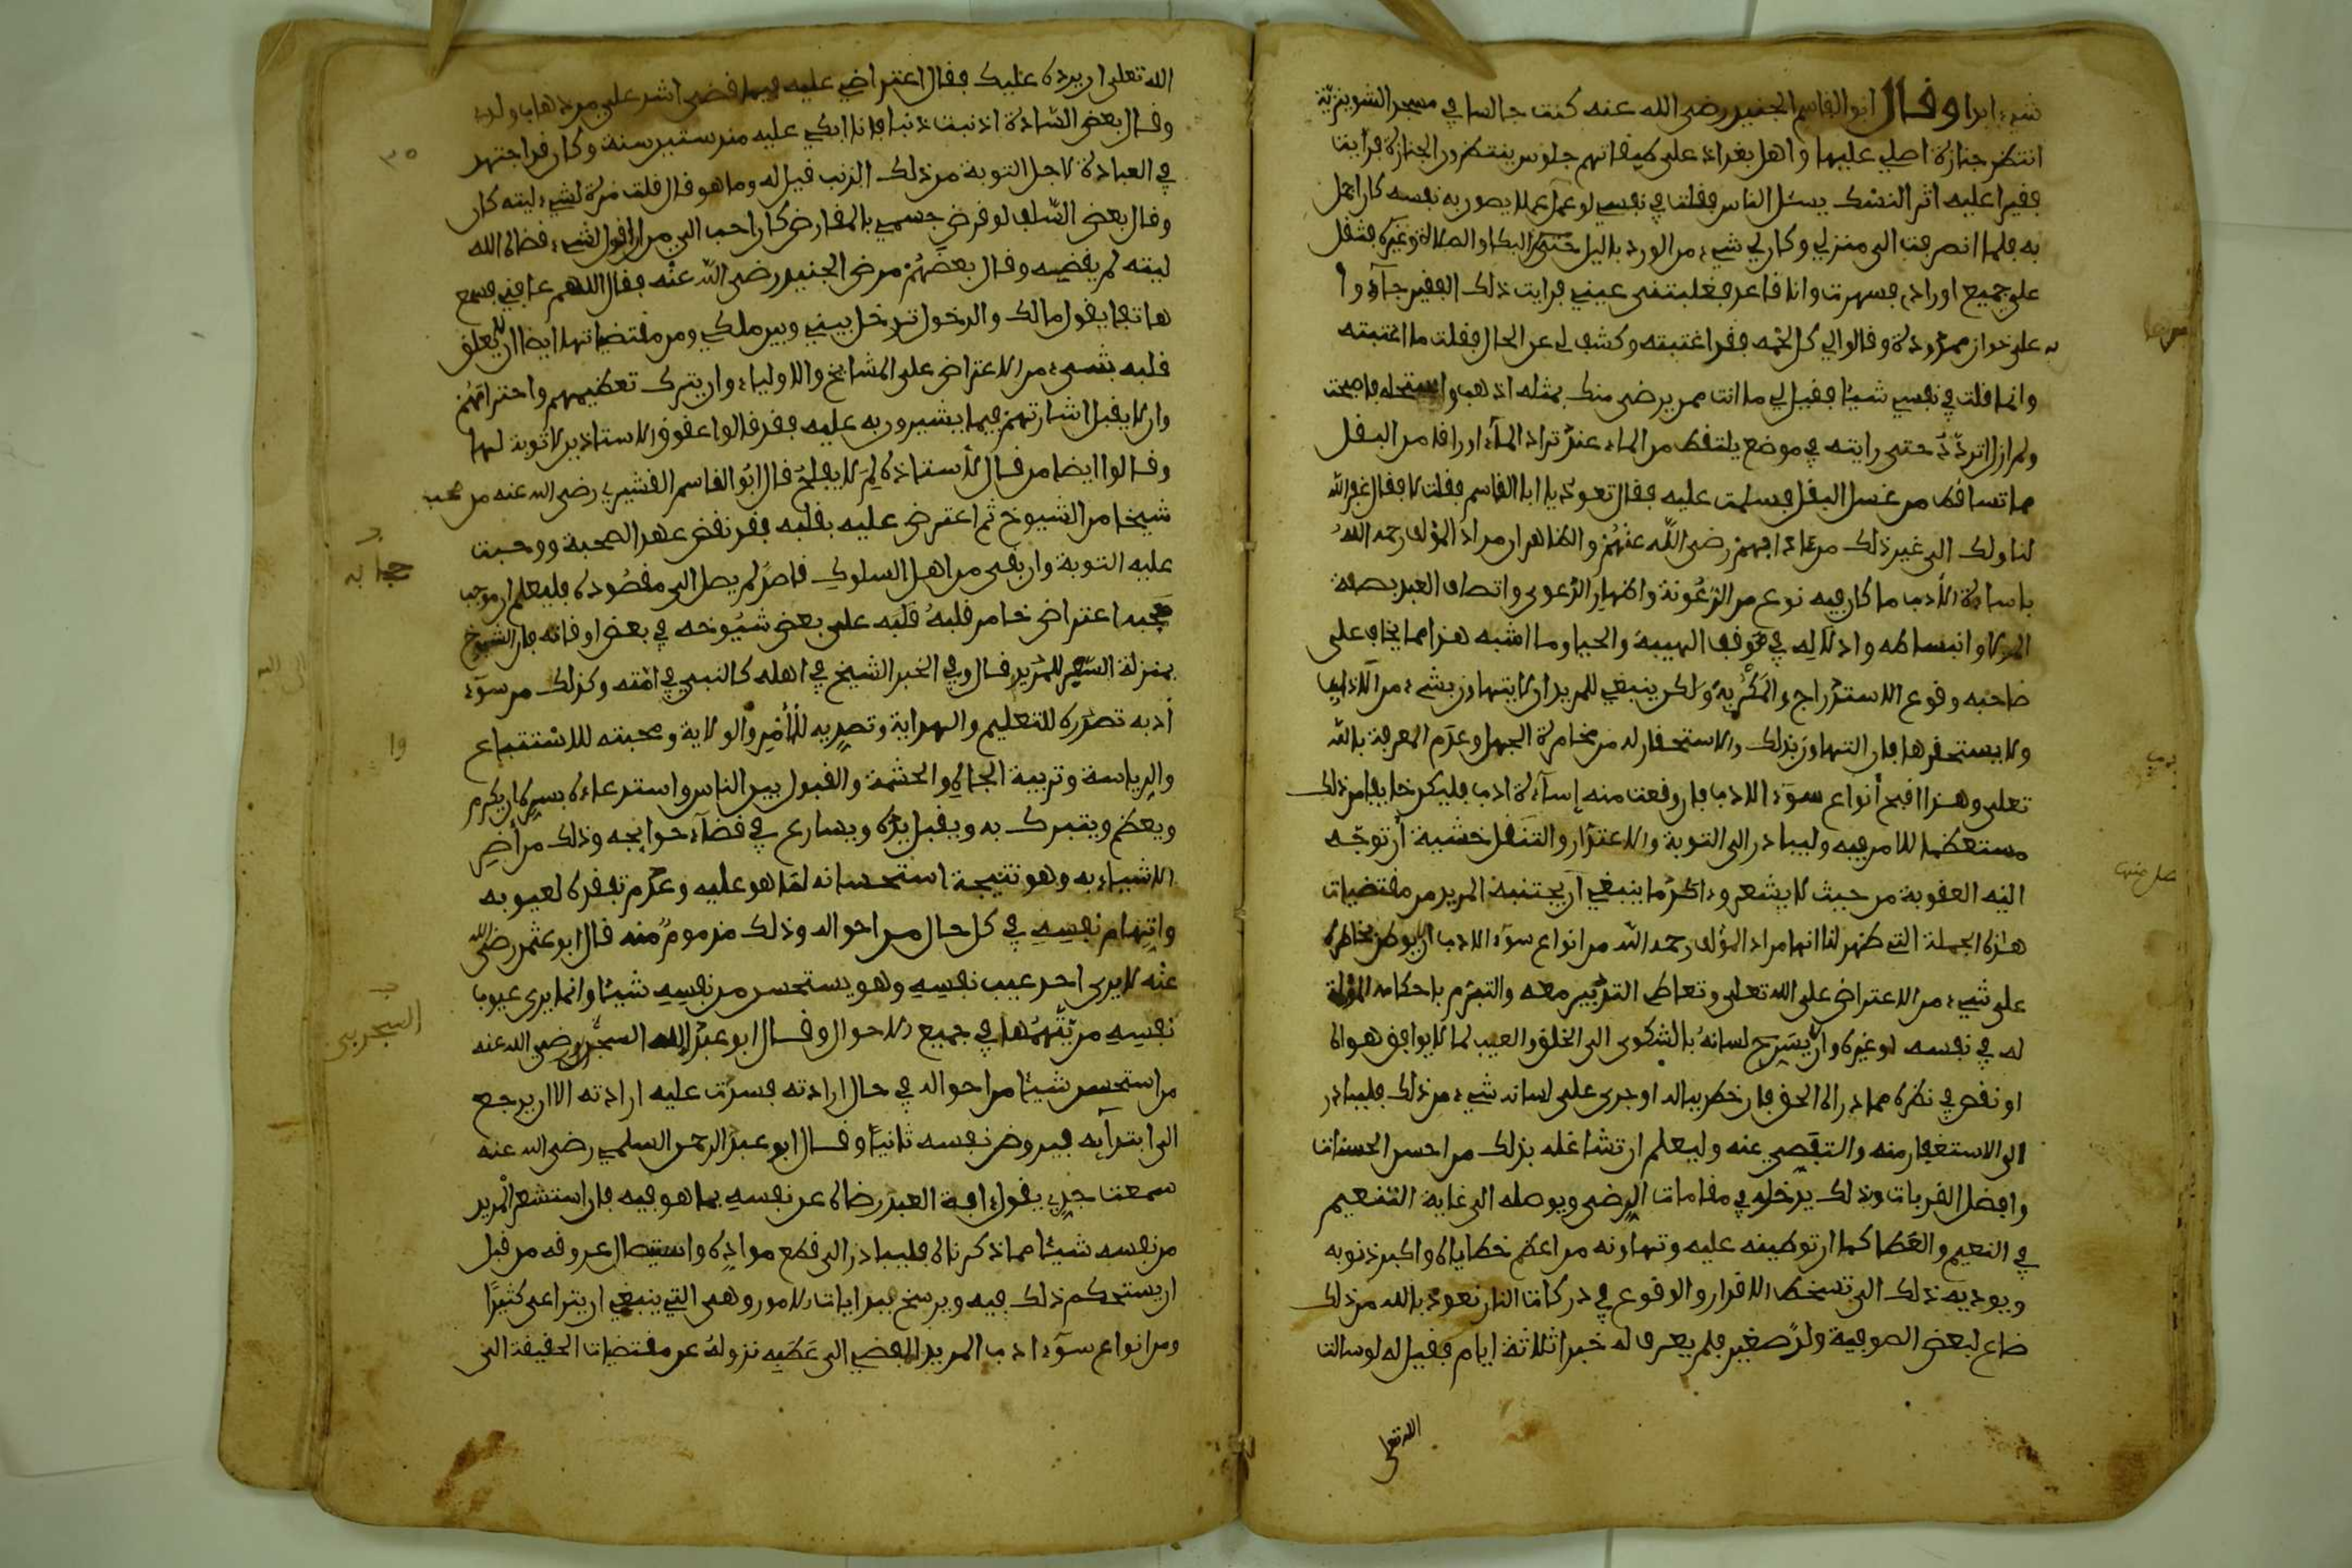 شيء ابدا وقال ابو القاسم الجنيد رضى الله عنه كنت جالسا في مسجد الشونيزية
انتظر جنازة اصلي عليها واهل بغداد على طبقاتهم جلوس ينتظرون الجنازة فرايت
فقيرا عليه اثر النسك يسئل الناس فقلت في نفسي لو عمل عملا يصون به نفسه كان اجمل
به فلما انصرفت الى منزلي وكان لي شيء من الورد بالليل حتى البكا والصلاة وغيره فثقل
على جميع اورادي فسهرت وانا قاعد فغلبتنى عيني فرايت ذلك الفقير جآءوا
به على خوان ممدود وقالوا لي كل لحمه فقد اغتبته وكشف لي عن الحال فقلت ما اغتبته
وانما قلت في نفسي شيئا فقيل لي ما انت ممن يرضى منك بمثله اذهب واستحله فاصبحت
ولم ازل اتردد حتى رايته في موضع يلتقط من الماء عند تراد المآء اوراقا من البقل
مما تساقط من غسل البقل فسلمت عليه فقال تعود يا ابا القاسم فقلت لا فقال غفر الله
لنا ولك الى غير ذلك من آدابهم رضى الله عنهم والظاهر ان مراد المؤلف رحمه الله
باساءة الأدب ما كان فيه نوع من الرعونة واظهار الدعوى واتصاف العبد بصفة
المولا وانبساطه وادلاله في موقف الهيبة والحيا وما اشبه هذا مما يخاف على
صاحبه وقوع الاستدراج والمكر به ولكن ينبغي للمريد ان لا يتهاون بشيء من الآداب
ولا يستحقرها فان التهاون بذلك والاستحقار له من مخامرة الجهل وعدم المعرفة بالله
تعلى وهذا اقبح أنواع سوء الادب فان وقعت منه إسآءة ادب فليكن خايفا من ذلك
مستعظما للامر فيه وليبادر الى التوبة والاعتذار والتنصل خشية أن توجه
اليه العقوبة من حيث لا يشعر وءاكد ما ينبغي أن يجتنبه المريد من مقتضيات
هذه الجملة التي ظهر لنا انها مراد المؤلف رحمه الله من انواع سوء الادب ان لا يوطن خاطره
على شيء من الاعتراض على الله تعلى وتعاطى التدبير معه والتبرم باحكامه المؤلمة
له في نفسه او غيره وان لا يسرح لسانه بالشكوى الى الخلق والعيب لما لا يوافق هواه
او نقص في نظره مما درا الى الحق فان خطر بباله او جرى على لسانه شيء من ذلك فليبادر
الى الاستغفار منه والتفصي عنه وليعلم ان تشاغله بذلك من احسن الحسنات
وافضل القربات وذلك يدخله في مقامات الرضى ويوصله الى غاية التنعيم
في النعيم والعطا كما ان توطينه عليه وتهاونه من اعظم خطاياه واكبر ذنوبه
ويوديه ذلك الى تسخط الاقدار والوقوع في دركات النار نعوذ بالله من ذلك
ضاع لبعض الصوفية ولد صغير فلم يعرف له خبرا ثلاثة ايام فقيل له لو سالت
الله تعلى
الله تعلى ان يرده عليك فقال اعتراضي عليه فيما قضى اشد على من ذهاب ولدي
وقال بعض السادة اذنبت ذنبا فانا ابكي عليه منذ ستين سنة وكان قد اجتهد
في العبادة لاجل التوبة من ذلك الذنب قيل له وما هو قال قلت مرة لشيء ليته كان
وقال بعض السلف لو قرض جسمي بالمقارض كان احب الى من ان اقول لشيء قضاه الله
ليته لم يقضيه وقال بعضهم مرض الجنيد رضى الله عنه فقال اللهم عافني فسمع
هاتفا يقول مالك والدخول تدخل بيني وبين ملكي ومن مقتضياتها ايضا ان لا يعلق
قلبه بشيء من الاعتراض على المشائخ والاولياء وان يترك تعظيمهم واحترامهم
وان لا يقبل اشارتهم فيما يشيرون به عليه فقد قالوا عقوق الاستاذين لا توبة لها
وقالوا ايضا من قال لأستاذه لم لا يفلح قال ابو القاسم القشيري رضى الله عنه من صحب
شيخا من الشيوخ ثم اعترض عليه بقلبه فقد نقض عهد الصحبة ووجبت
عليه التوبة وان بقى من اهل السلوك قاصد لم يصل الى مقصوده فليعلم ان موجب
حجبه اعتراض خامر قلبه على بعض شيوخه في بعض اوقاته فان الشيوخ
بمنزلة السفير للمريد قال وفي الخبر الشيخ في اهله كالنبي في امته وكذلك من سوء
أدبه تصدره للتعليم والهداية وتصديه للأمر والولاية ومحبته للاستتباع
والرياسة وتربية الجاه والحشمة والقبول بين الناس واستدعاءه بسره ان يكرم
ويعظم ويتبرك به ويقبل يده ويسارع في قضآء حوايجه وذلك من أضر
الاشياء به وهو نتيجة استحسانه لما هو عليه وعدم تفقده لعيوبه
واتهام نفسه في كل حال من احواله وذلك مذموم منه قال ابو عثمن رضى الله
عنه لا يرى احد عيب نفسه وهو يستحسن من نفسه شيئا وانما يرى عيوب
نفسه من يتهمها في جميع الاحوال وقال ابو عبد الله السجزى رضي الله عنه
من استحسن شيئا من احواله في حال ارادته فسدت عليه ارادته الا ان يرجع
الى ابتدآيه فيروض نفسه ثانيا وقال ابو عبد الرحمن السلمي رضى الله عنه
سمعت جدي يقول ءافة العبد رضاه عن نفسه بما هو فيه فان استشعر المريد
من نفسه شيئا مما ذكرناه فليبادر الى قطع مواده واستيصال عروقه من قبل
ان يستحكم ذلك فيه ويرسخ فبدايات الامور وهى التي ينبغي ان يتراعى كثيرا
ومن انواع سوء ادب المريد المفضي الى عطبه نزوله عن مقتضيات الحقيقة الى